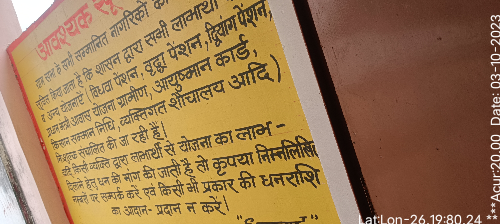 आवश्यक सू
ग्राम सभा के सभी सम्मानित नागरिकों को
सूचित किया जाता है कि शासन द्वारा सभी लाभार्थी
व अन्य योजनाएं (विधवा पेंशन, वृद्धा पेंशन, दिव्यांग पेंशन,
प्रधानमंत्री आवास योजना ग्रामीण, आयुष्मान कार्ड,
किसान सम्मान निधि, व्यक्तिगत शौचालय आदि)
निःशुल्क संचालित की जा रही हैं।
यदि किसी व्यक्ति द्वारा लाभार्थी से योजना का लाभ -
दिलाने हेतु धन की मांग की जाती है तो कृपया निम्नलिखित
नम्बरों पर सम्पर्क करें एवं किसी भी प्रकार की धनराशि
का आदान - प्रदान न करें।
Lat:Lon-26.19:80.24
Date: 03-10-2023